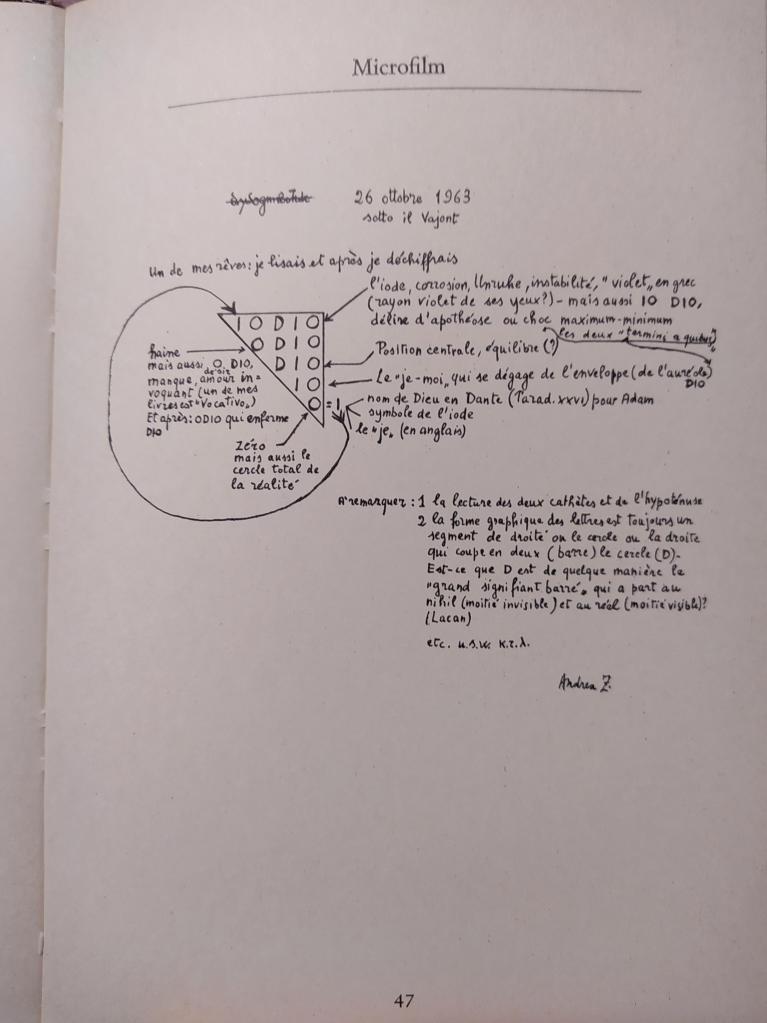 Microfilm
26 ottobre 1963
sotto il Vajont
Un de mes rêves: je lisais et après je déchiffrais
l'iode, corrosion, Unruhe, instabilité, "violet" en grec
(rayon violet de ses yeux?) - mais aussi IO DIO,
délire d'apothéose ou choc maximum-minimum
les deux "termini a quibus"
I O D I O
O D I O
D I O
I O
O = I
haine
mais aussi, O, DIO,
désir
manque, amour in-
voquant (un de mes
livres est "Vocativo")
Et après: ODIO qui enferme
DIO
Position centrale, équilibre (?)
Le "je-moi" qui se dégage de l'enveloppe (de l'auréole)
DIO
nom de Dieu en Dante (Parad. XXVI) pour Adam
symbole de l'iode
le "je" (en anglais)
Zéro
mais aussi le
cercle total de
la réalité
A remarquer: 1 la lecture des deux cathètes et de l'hypoténuse
2 la forme graphique des lettres est toujours un
segment de droite ou le cercle ou la droite
qui coupe en deux (barre) le cercle (D)-
Est-ce que D est de quelque manière le
"grand signifiant barré" qui a part au
nihil (moitié invisible) et au réel (moitié visible)?
(Lacan)
etc. u.s.w. κ.τ.λ.
Andrea Z.
47